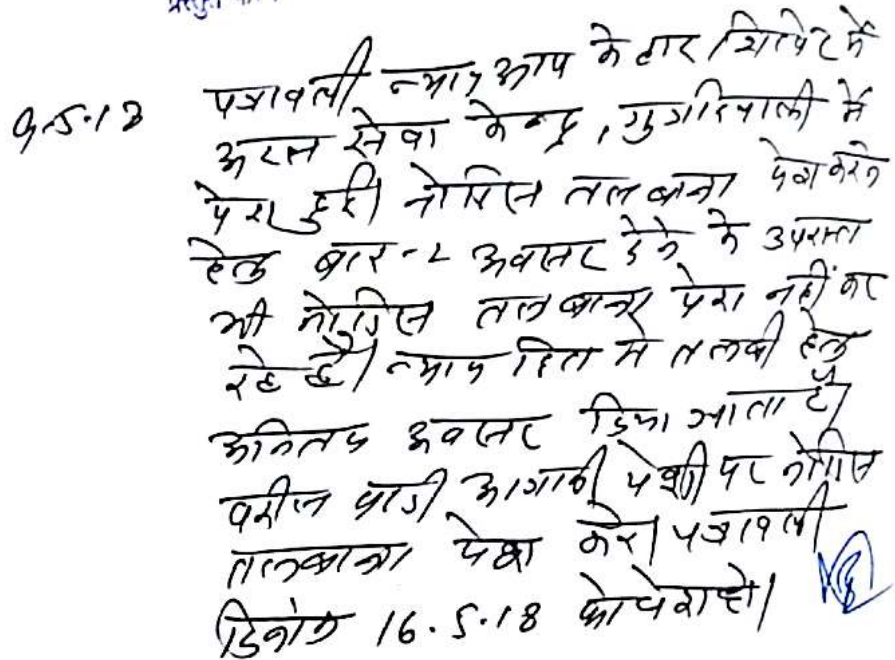 9.5.18 पत्रावली न्याय आप के द्वार शिविर में
अटल सेवा केन्द्र, में
पेश हुई। नोटिस तलबाना पेश करने
हेतु बार-2 अवसर देने के उपरान्त
भी नोटिस तलबाना पेश नहीं कर
रहे है। न्याय हित में तलबी हेतु
अन्तिम अवसर दिया जाता है।
वकील वादी आगामी पेशी पर नोटिस
तलबाना पेश करे। पत्रावली
दिनांक 16.5.18 को पेश हो।